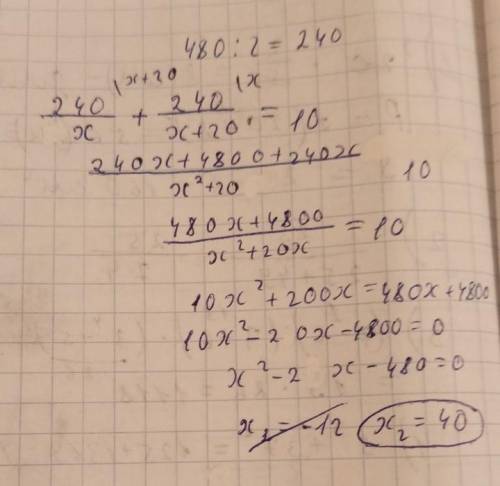 480 : 2 = 240
240/x |x+20 + 240/x+20 |x = 10
240x+4800+240x/x²+20 10
480x+4800/x²+20x = 10
10x²+200x=480x+4800
10x²-2 0x-4800=0
x²-2 x-480=0
x₁=-12 x₂=40